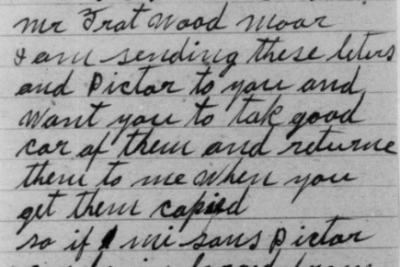 mr Frat Wood moar
I am sending these leters
and Pictar to you and
Want you to tak good
car of them and returne
them to me When you
get them copied
so if mi sons Pictar